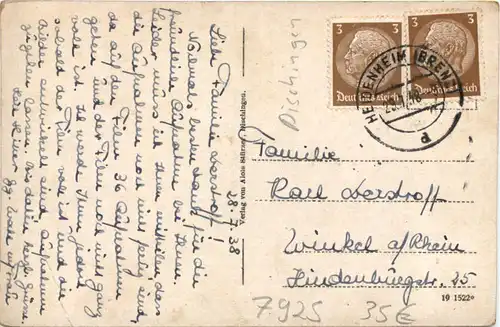 28.7.38
Liebe Familie Derstroff!
Nochmals besten Dank für die
freundliche Aufnahme bei Ihnen.
Leider muss ich Ihnen mitteilen das
die Aufnahmen noch nicht fertig sind,
da auf dem Film 36 Aufnahmen
gehen und der Film noch nicht ganz
voll ist. Ich werde Ihnen jedoch
sobald der Film voll ist und die
Bilder entwickelt sind, Aufnahmen
zugehen lassen. Bis dahin herzl. Grüsse
Verlag von Alois Büttner, Bischingen.
3
Deutsches Reich
3
Deutsches Reich
HERBENHEIM (BRENZ)
d
Familie
Karl Derstroff
Winkel a/Rhein
Hindenburgstr. 25
7925
35€
19 1522*